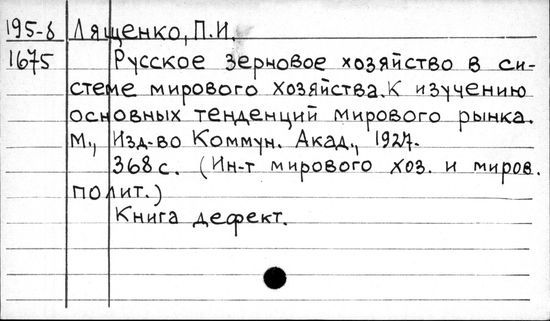 195-8 Лященко, П.И.
1675 Русское зерновое хозяйство в си-
стеме мирового хозяйства. К изучению
основных тенденций мирового рынка.
М., Изд-во Коммун. Акад., 1927.
368 с. (Ин-т мирового хоз. и миров.
полит.)
Книга дефект.